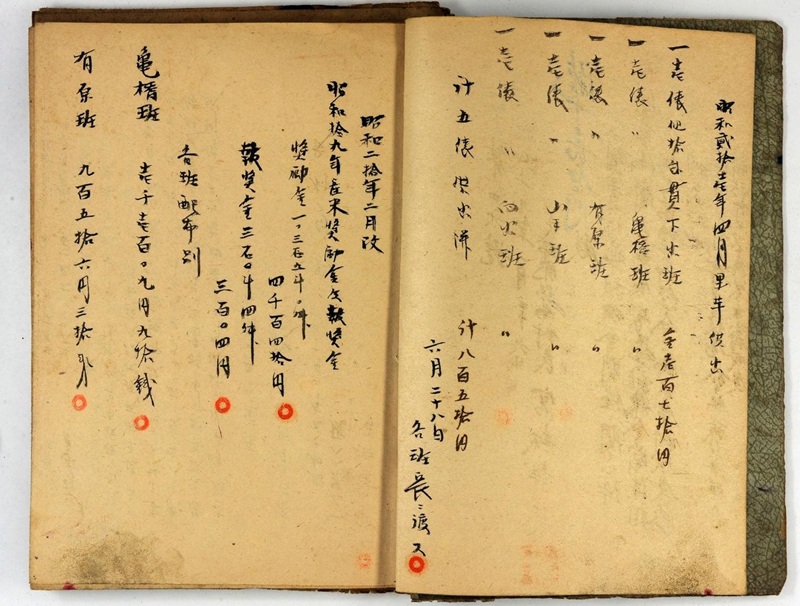 昭和貳拾壱年四月里芋供出
一壱俵 但拾貫下出班 金壱百七拾円
一壱俵 〃 亀樁班 〃
一壱俵 〃 有原班 〃
一壱俵 〃 山手班 〃
一壱俵 〃 向出班 〃
計五俵供出済 計八百五拾円
六月二十八日 各班長ニ渡ス
昭和二拾年二月改
昭和拾九年産米奨励金及報奨金
奨励金
四千百四拾円
報奨金
三百〇四円
各班配布別
亀樁班 壱千壱百〇九円九拾銭
有原班 九百五拾六円三拾銭